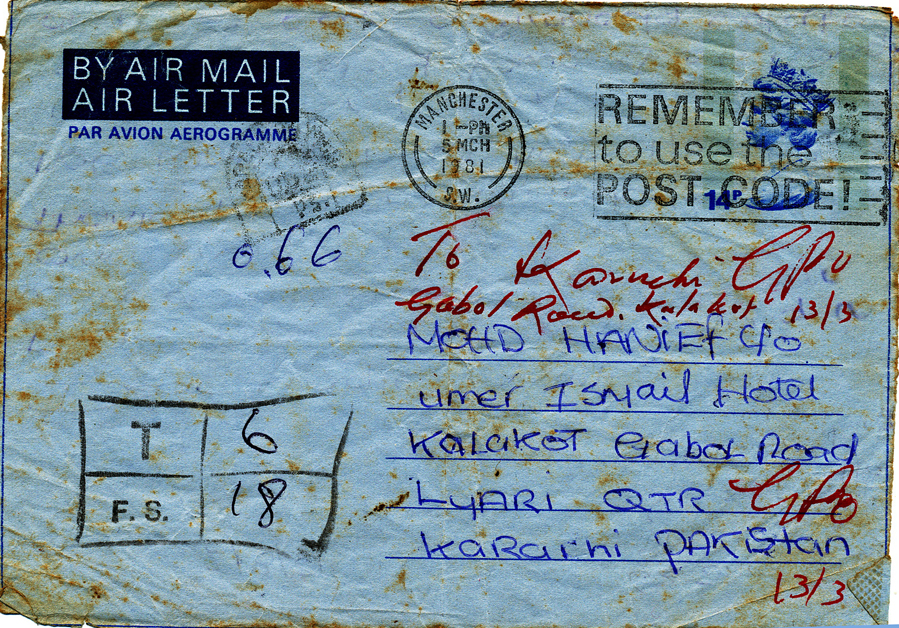 BY AIR MAIL
AIR LETTER
PAR AVION AEROGRAMME
MANCHESTER
1-PM
5 MCH
1981
S.W.
REMEMBER
to use the
POST CODE!
14P
Paid
0.66
To Karachi GPO
Gabol Road. Kalakot 13/3
MOHD HANIEF C/o
umer Ismail Hotel
KALAKOT GABOL Road
LYARI QTR GPO
KaRachi PAKIStan
13/3
T 6
F. S. 18